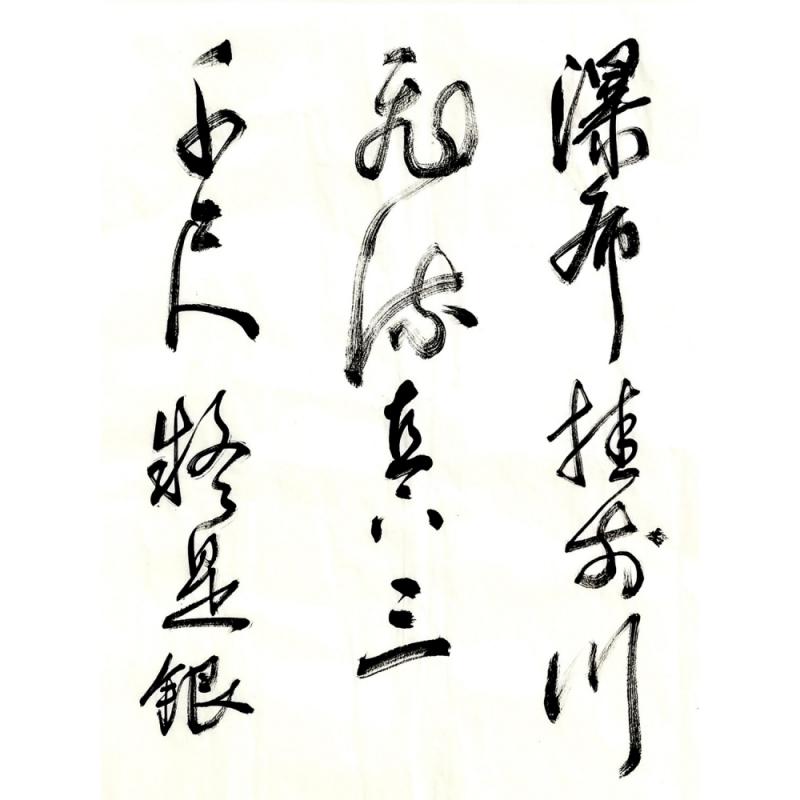 瀑布挂前川
飛流直下三
千尺疑是銀